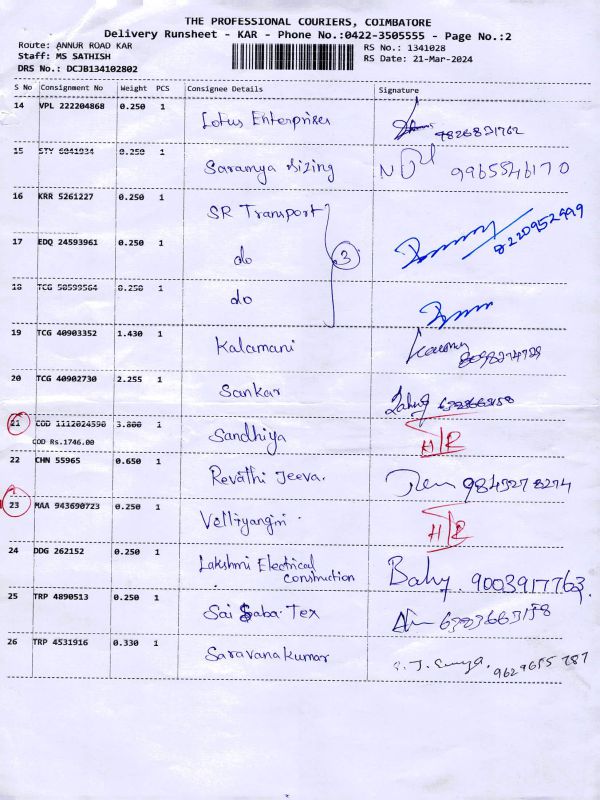 THE PROFESSIONAL COURIERS, COIMBATORE
Delivery Runsheet - KAR - Phone No.:0422-3505555 - Page No.:2
Route: ANNUR ROAD KAR
RS No.: 1341028
Staff: MS SATHISH
RS Date: 21-Mar-2024
DRS No.: DCJB134102802
S No Consignment No Weight PCS Consignee Details Signature
14 VPL 222204868 0.250 1 Lotus Enterprises
15 STY 6841934 0.250 1 Saramya Sizing 9965546170
16 KRR 5261227 0.250 1 SR Transport
17 EDQ 24593961 0.250 1 do 3 8220952499
18 TCG 50593564 0.250 1 do
19 TCG 40903352 1.430 1 Kalamani
20 TCG 40902730 2.255 1 Sankar
21 COD 1112024590 3.800 1 Sandhiya H/R
COD Rs.1746.00
22 CHN 55965 0.650 1 Revathi Jeeva. 9843278274
23 MAA 943690723 0.250 1 Velliyangiri H/R
24 DDG 262152 0.250 1 Lakshmi Electrical
Construction 9003917763.
25 TRP 4890513 0.250 1 Sai Saba Tex 6383663158
26 TRP 4531916 0.330 1 Saravanakumar